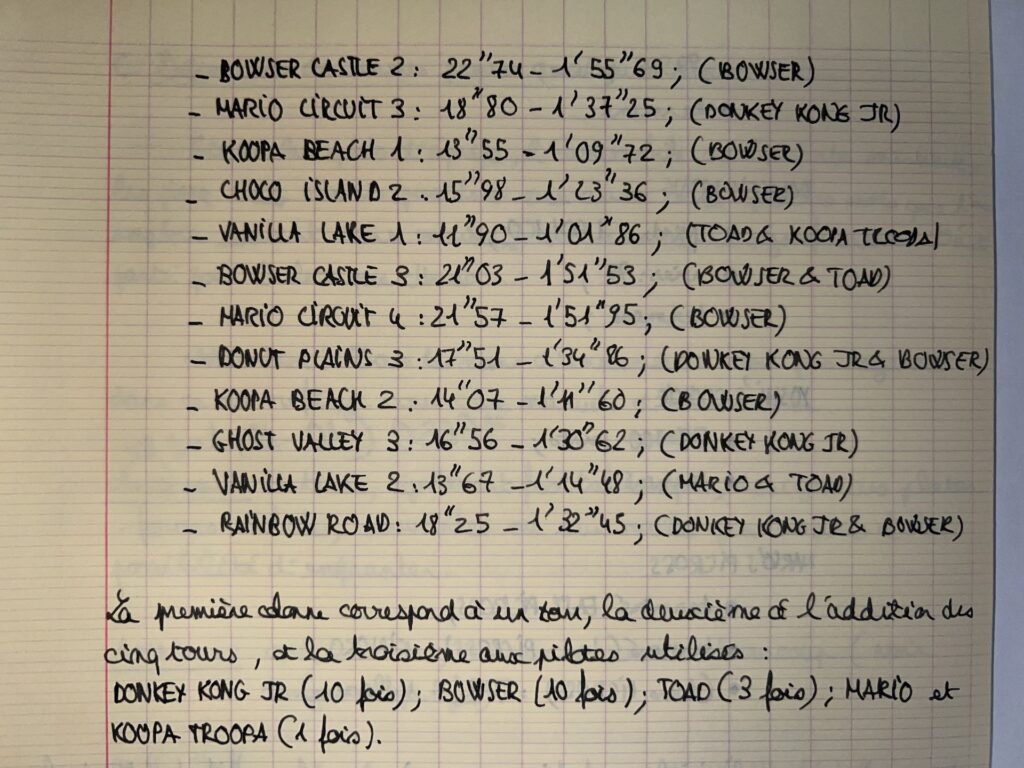 - BOWSER CASTLE 2 : 22"74 - 1'55"69 ; (BOWSER)
- MARIO CIRCUIT 3 : 18"80 - 1'37"25 ; (DONKEY KONG JR)
- KOOPA BEACH 1 : 13"55 - 1'09"72 ; (BOWSER)
- CHOCO ISLAND 2 : 15"98 - 1'23"36 ; (BOWSER)
- VANILLA LAKE 1 : 11"90 - 1'01"86 ; (TOAD & KOOPA TROOPA)
- BOWSER CASTLE 3 : 21"03 - 1'51"53 ; (BOWSER & TOAD)
- MARIO CIRCUIT 4 : 21"57 - 1'51"95 ; (BOWSER)
- DONUT PLAINS 3 : 17"51 - 1'34"86 ; (DONKEY KONG JR & BOWSER)
- KOOPA BEACH 2 : 14"07 - 1'11"60 ; (BOWSER)
- GHOST VALLEY 3 : 16"56 - 1'30"62 ; (DONKEY KONG JR)
- VANILLA LAKE 2 : 13"67 - 1'14"48 ; (MARIO & TOAD)
- RAINBOW ROAD : 18"25 - 1'32"45 ; (DONKEY KONG JR & BOWSER)
La première colonne correspond à un tour, la deuxième à l'addition des
cinq tours, et la troisième aux pilotes utilisés :
DONKEY KONG JR (10 fois) ; BOWSER (10 fois) ; TOAD (3 fois) ; MARIO et
KOOPA TROOPA (1 fois).